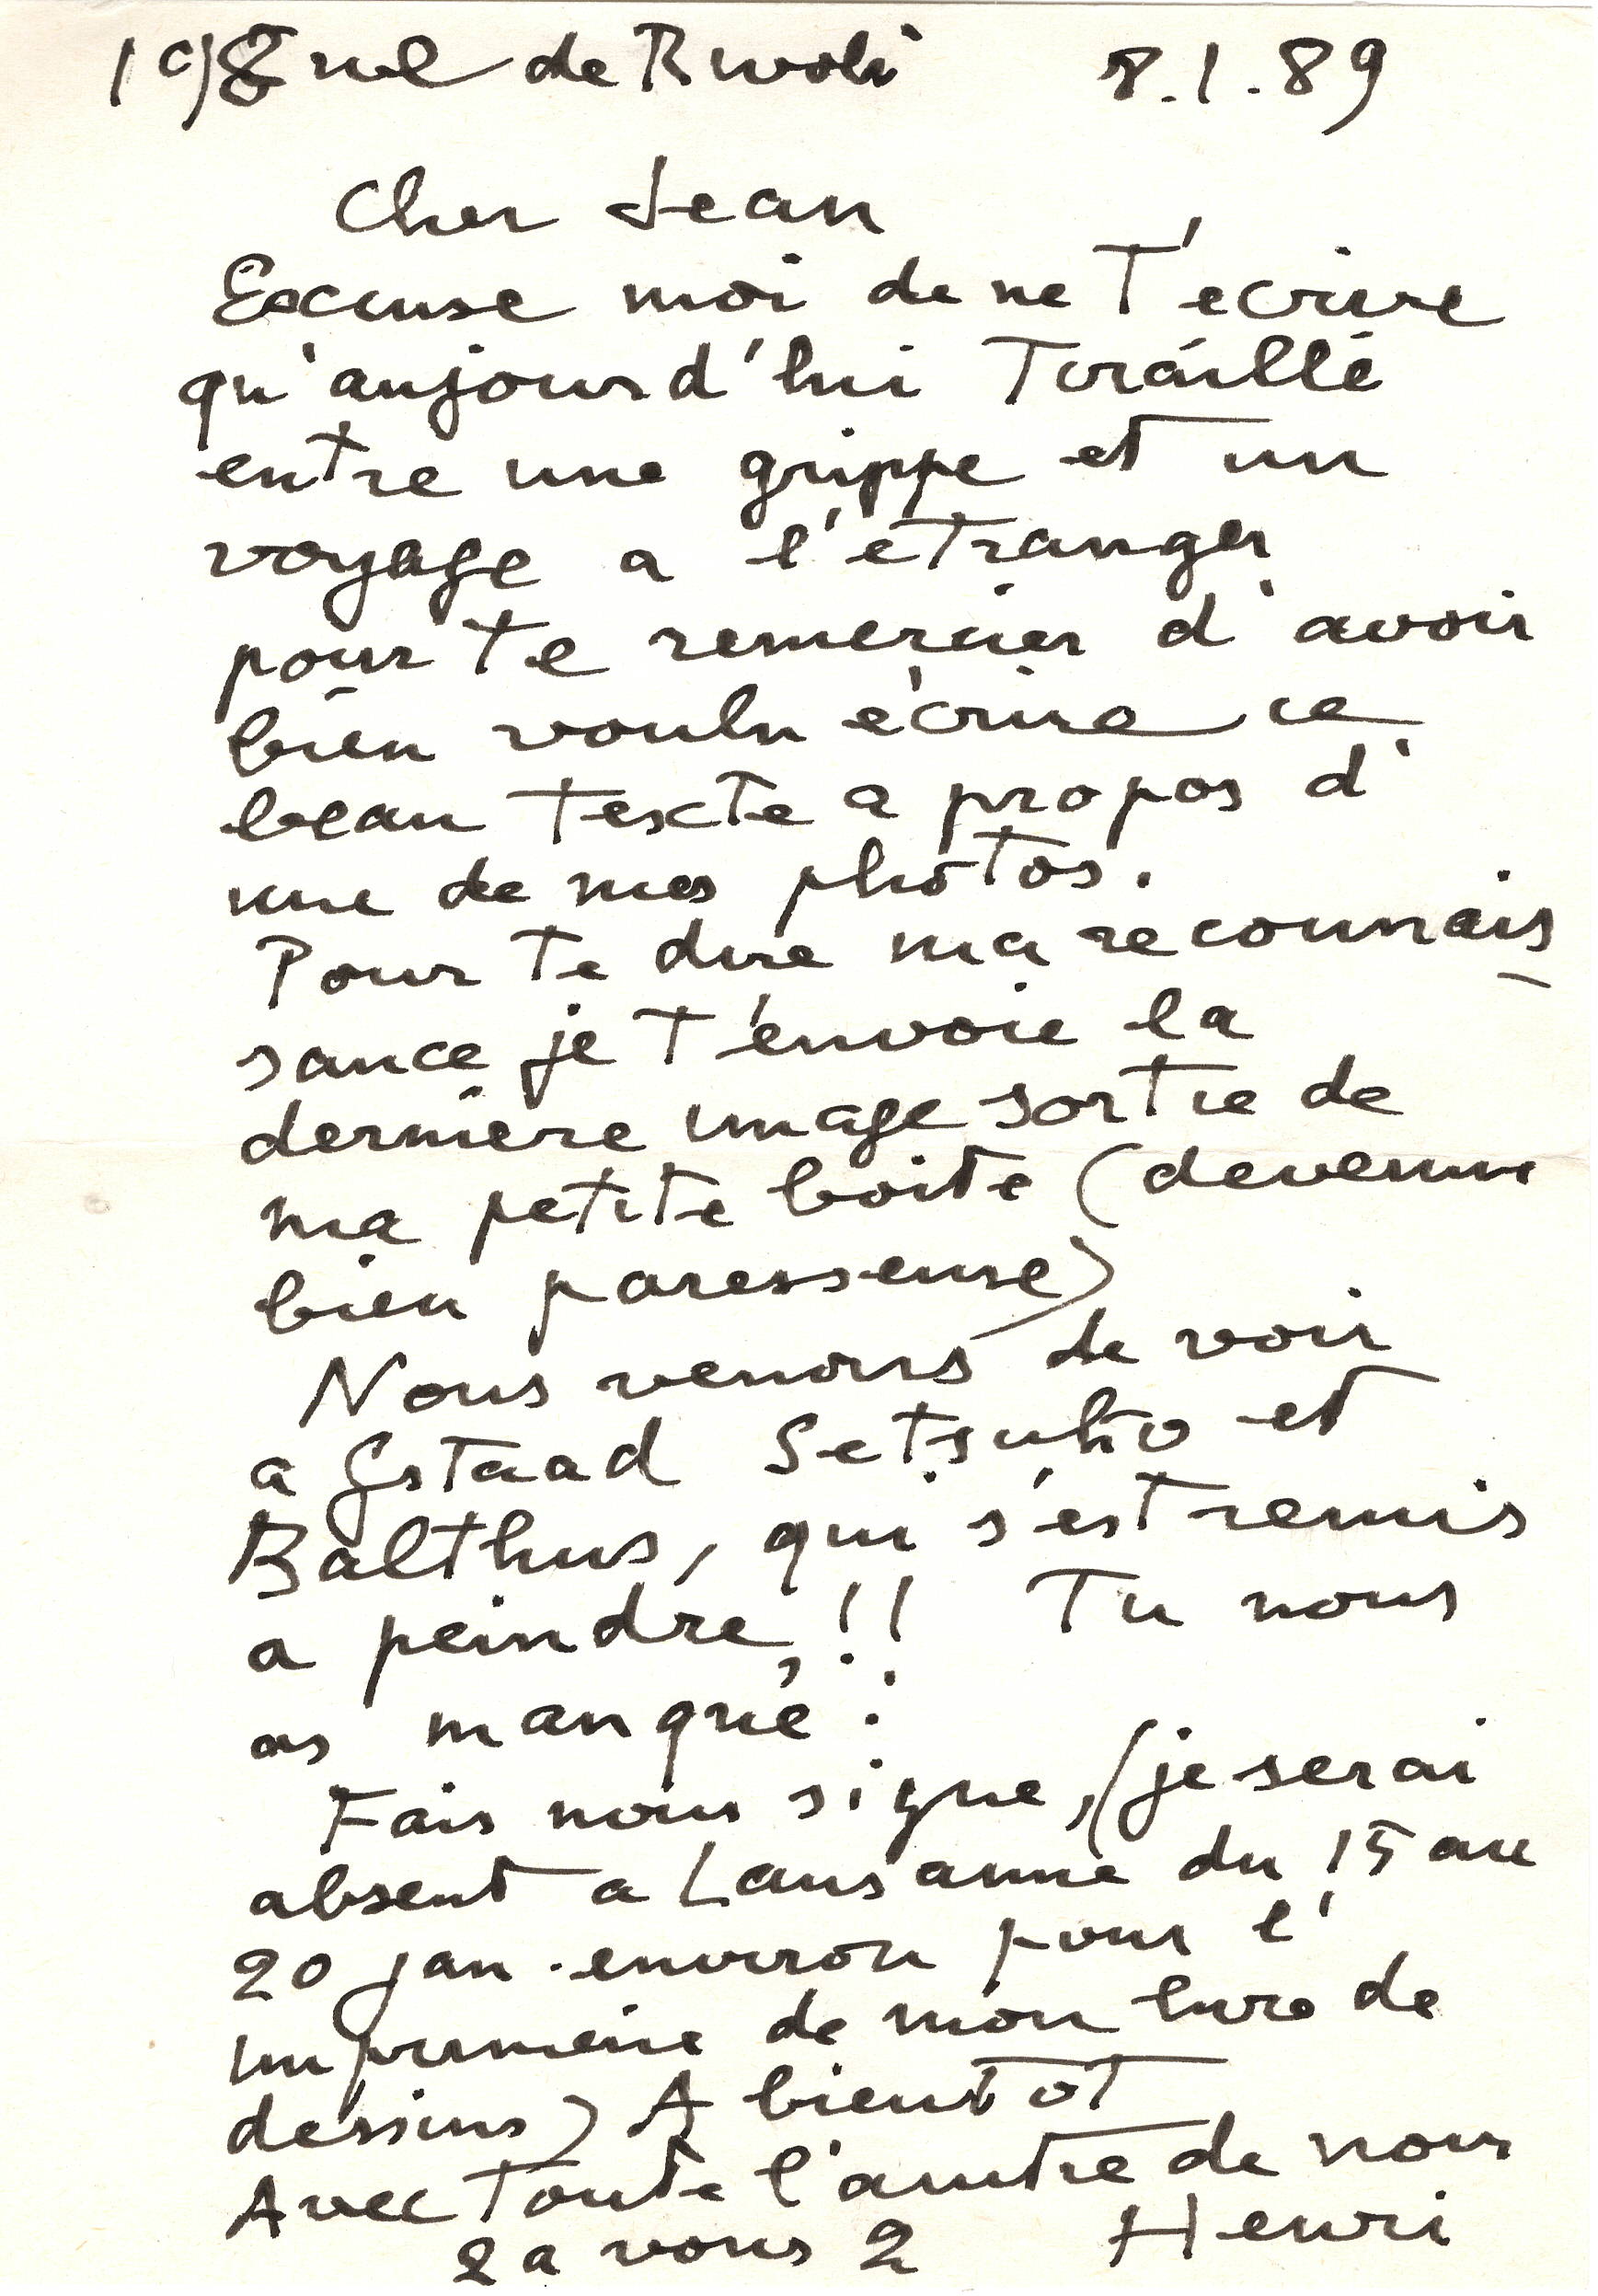 198 rue de Rivoli 8.1.89
Cher Jean
Excuse moi de ne T'ecrire
qu'aujourd'hui Tiraillé
entre une grippe et un
voyage a l'etranger
pour te remercier d'avoir
bien voulu écrire ce
beau texte a propos d'
une de mes photos.
Pour te dire ma reconnais
sance je t'envoie la
dernière image sortie de
ma petite boite (devenue
bien paresseuse)
Nous venons de voir
a Gstaad Setsuko et
Balthus, qui s'est remis
a peindre, !! Tu nous
as manqué !
Fais nous signe, (je serai
absent a Lausanne du 15 au
20 jan. environ pour l'
imprimerie de mon livre de
dessins) A bientot
Avec toute l'amitie de nous
2 a vous 2 Henri